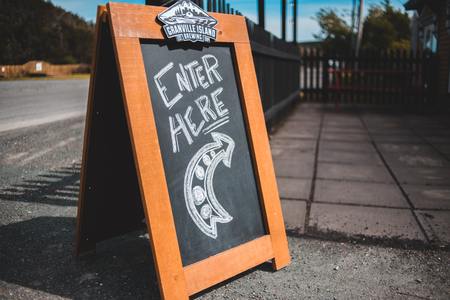 GRANVILLE ISLAND
BREWING
ENTER
HERE